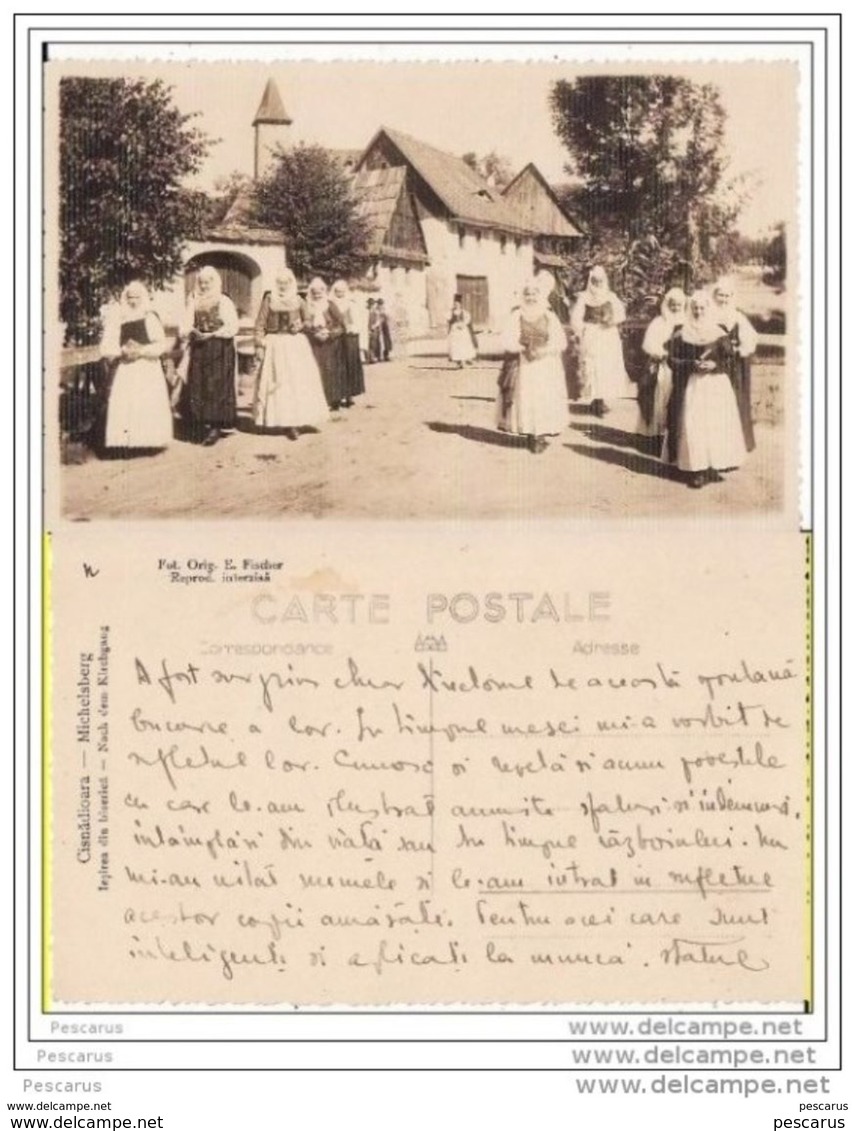 n
Fot. Orig. E. Fischer
Reprod. interzisă
CARTE POSTALE
Correspondance
Adresse
Cisnădioara — Michelsberg
Ieșirea din biserică — Nach dem Kirchgang
A fost surprins chiar de această spontană
bucurie a lor. În timpul mesei mi-a vorbit de
sufletul lor. Cunosc si repetă si acum povestile
cu care le-am ilustrat anumite sfaturi si indemnuri,
intâmplări din viată sau din timpul războiului. Nu
mi-au uitat numele si le-am intrat in sufletul
acestor copii amărâti. Pentru acei care sunt
inteligenti si aplicati la muncă, statul
Pescarus
www.delcampe.net
Pescarus
www.delcampe.net
Pescarus
www.delcampe.net
www.delcampe.net
pescarus
www.delcampe.net
pescarus